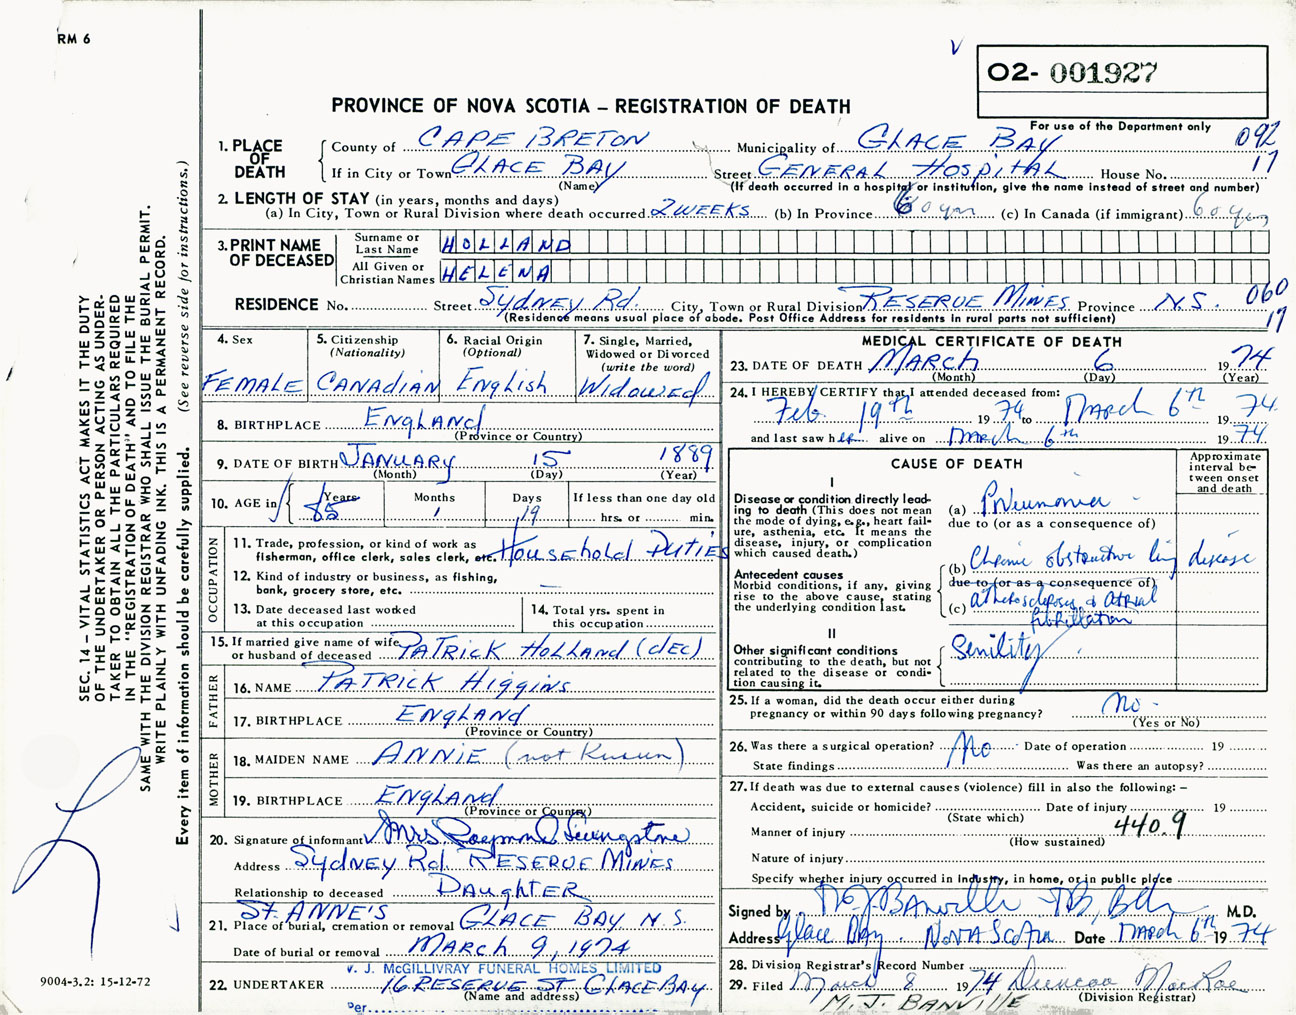 RM 6
O2- 001927
PROVINCE OF NOVA SCOTIA – REGISTRATION OF DEATH
For use of the Department only
092
17
1. PLACE OF DEATH
County of CAPE BRETON Municipality of GLACE BAY
If in City or Town GLACE BAY Street GENERAL HOSPITAL House No.
(Name) (If death occurred in a hospital or institution, give the name instead of street and number)
2. LENGTH OF STAY (in years, months and days)
(a) In City, Town or Rural Division where death occurred 2 WEEKS (b) In Province 60 yrs (c) In Canada (if immigrant) 60 yrs
3. PRINT NAME OF DECEASED
Surname or Last Name HOLLAND
All Given or Christian Names HELENA
RESIDENCE No. Street Sydney Rd. City, Town or Rural Division RESERVE MINES Province N.S. 060
17
(Residence means usual place of abode. Post Office Address for residents in rural parts not sufficient)
4. Sex
FEMALE
5. Citizenship (Nationality)
CANADIAN
6. Racial Origin (Optional)
English
7. Single, Married, Widowed or Divorced (write the word)
Widowed
8. BIRTHPLACE ENGLAND
(Province or Country)
9. DATE OF BIRTH JANUARY 15 1889
(Month) (Day) (Year)
10. AGE in Years Months Days If less than one day old
85 1 19 hrs. or min.
OCCUPATION
11. Trade, profession, or kind of work as
fisherman, office clerk, sales clerk, etc. Household Duties
12. Kind of industry or business, as fishing,
bank, grocery store, etc. —
13. Date deceased last worked at this occupation
14. Total yrs. spent in this occupation
15. If married give name of wife
or husband of deceased PATRICK HOLLAND (dec)
FATHER
16. NAME PATRICK HIGGINS
17. BIRTHPLACE ENGLAND
(Province or Country)
MOTHER
18. MAIDEN NAME ANNIE (not Known)
19. BIRTHPLACE ENGLAND
(Province or Country)
20. Signature of informant Mrs. Raymond Livingstone
Address Sydney Rd. RESERVE MINES
Relationship to deceased DAUGHTER
ST. ANNE'S
21. Place of burial, cremation or removal GLACE BAY N.S.
Date of burial or removal MARCH 9, 1974
V. J. McGILLIVRAY FUNERAL HOMES LIMITED
22. UNDERTAKER 16 RESERVE ST GLACE BAY
(Name and address)
Per
MEDICAL CERTIFICATE OF DEATH
23. DATE OF DEATH MARCH 6 1974
(Month) (Day) (Year)
24. I HEREBY CERTIFY that I attended deceased from:
Feb. 19th 1974 to MARCH 6th 1974
and last saw her alive on March 6th 1974
CAUSE OF DEATH
Approximate interval between onset and death
I
Disease or condition directly leading to death (This does not mean the mode of dying, e.g., heart failure, asthenia, etc. It means the disease, injury, or complication which caused death.)
(a) Pneumonia
due to (or as a consequence of)
Antecedent causes
Morbid conditions, if any, giving rise to the above cause, stating the underlying condition last.
(b) Chronic obstructive lung disease
due to (or as a consequence of)
(c) atherosclerosis & atrial
fibrillation
II
Other significant conditions
contributing to the death, but not related to the disease or condition causing it.
Senility
25. If a woman, did the death occur either during
pregnancy or within 90 days following pregnancy? No
(Yes or No)
26. Was there a surgical operation? No Date of operation 19
State findings Was there an autopsy?
27. If death was due to external causes (violence) fill in also the following: –
Accident, suicide or homicide? Date of injury 19
(State which)
Manner of injury 440.9
(How sustained)
Nature of injury
Specify whether injury occurred in Industry, in home, or in public place
Signed by M.J. Banville M.D.
Address Glace Bay Nova Scotia Date MARCH 6th 1974
28. Division Registrar's Record Number
29. Filed March 8 1974 Duncan MacRae
M. J. BANVILLE (Division Registrar)
SEC. 14 – VITAL STATISTICS ACT MAKES IT THE DUTY
OF THE UNDERTAKER OR PERSON ACTING AS UNDER-
TAKER TO OBTAIN ALL THE PARTICULARS REQUIRED
IN THE "REGISTRATION OF DEATH" AND TO FILE THE
SAME WITH THE DIVISION REGISTRAR WHO SHALL ISSUE THE BURIAL PERMIT.
WRITE PLAINLY WITH UNFADING INK. THIS IS A PERMANENT RECORD.
Every item of information should be carefully supplied. (See reverse side for instructions.)
9004-3.2: 15-12-72